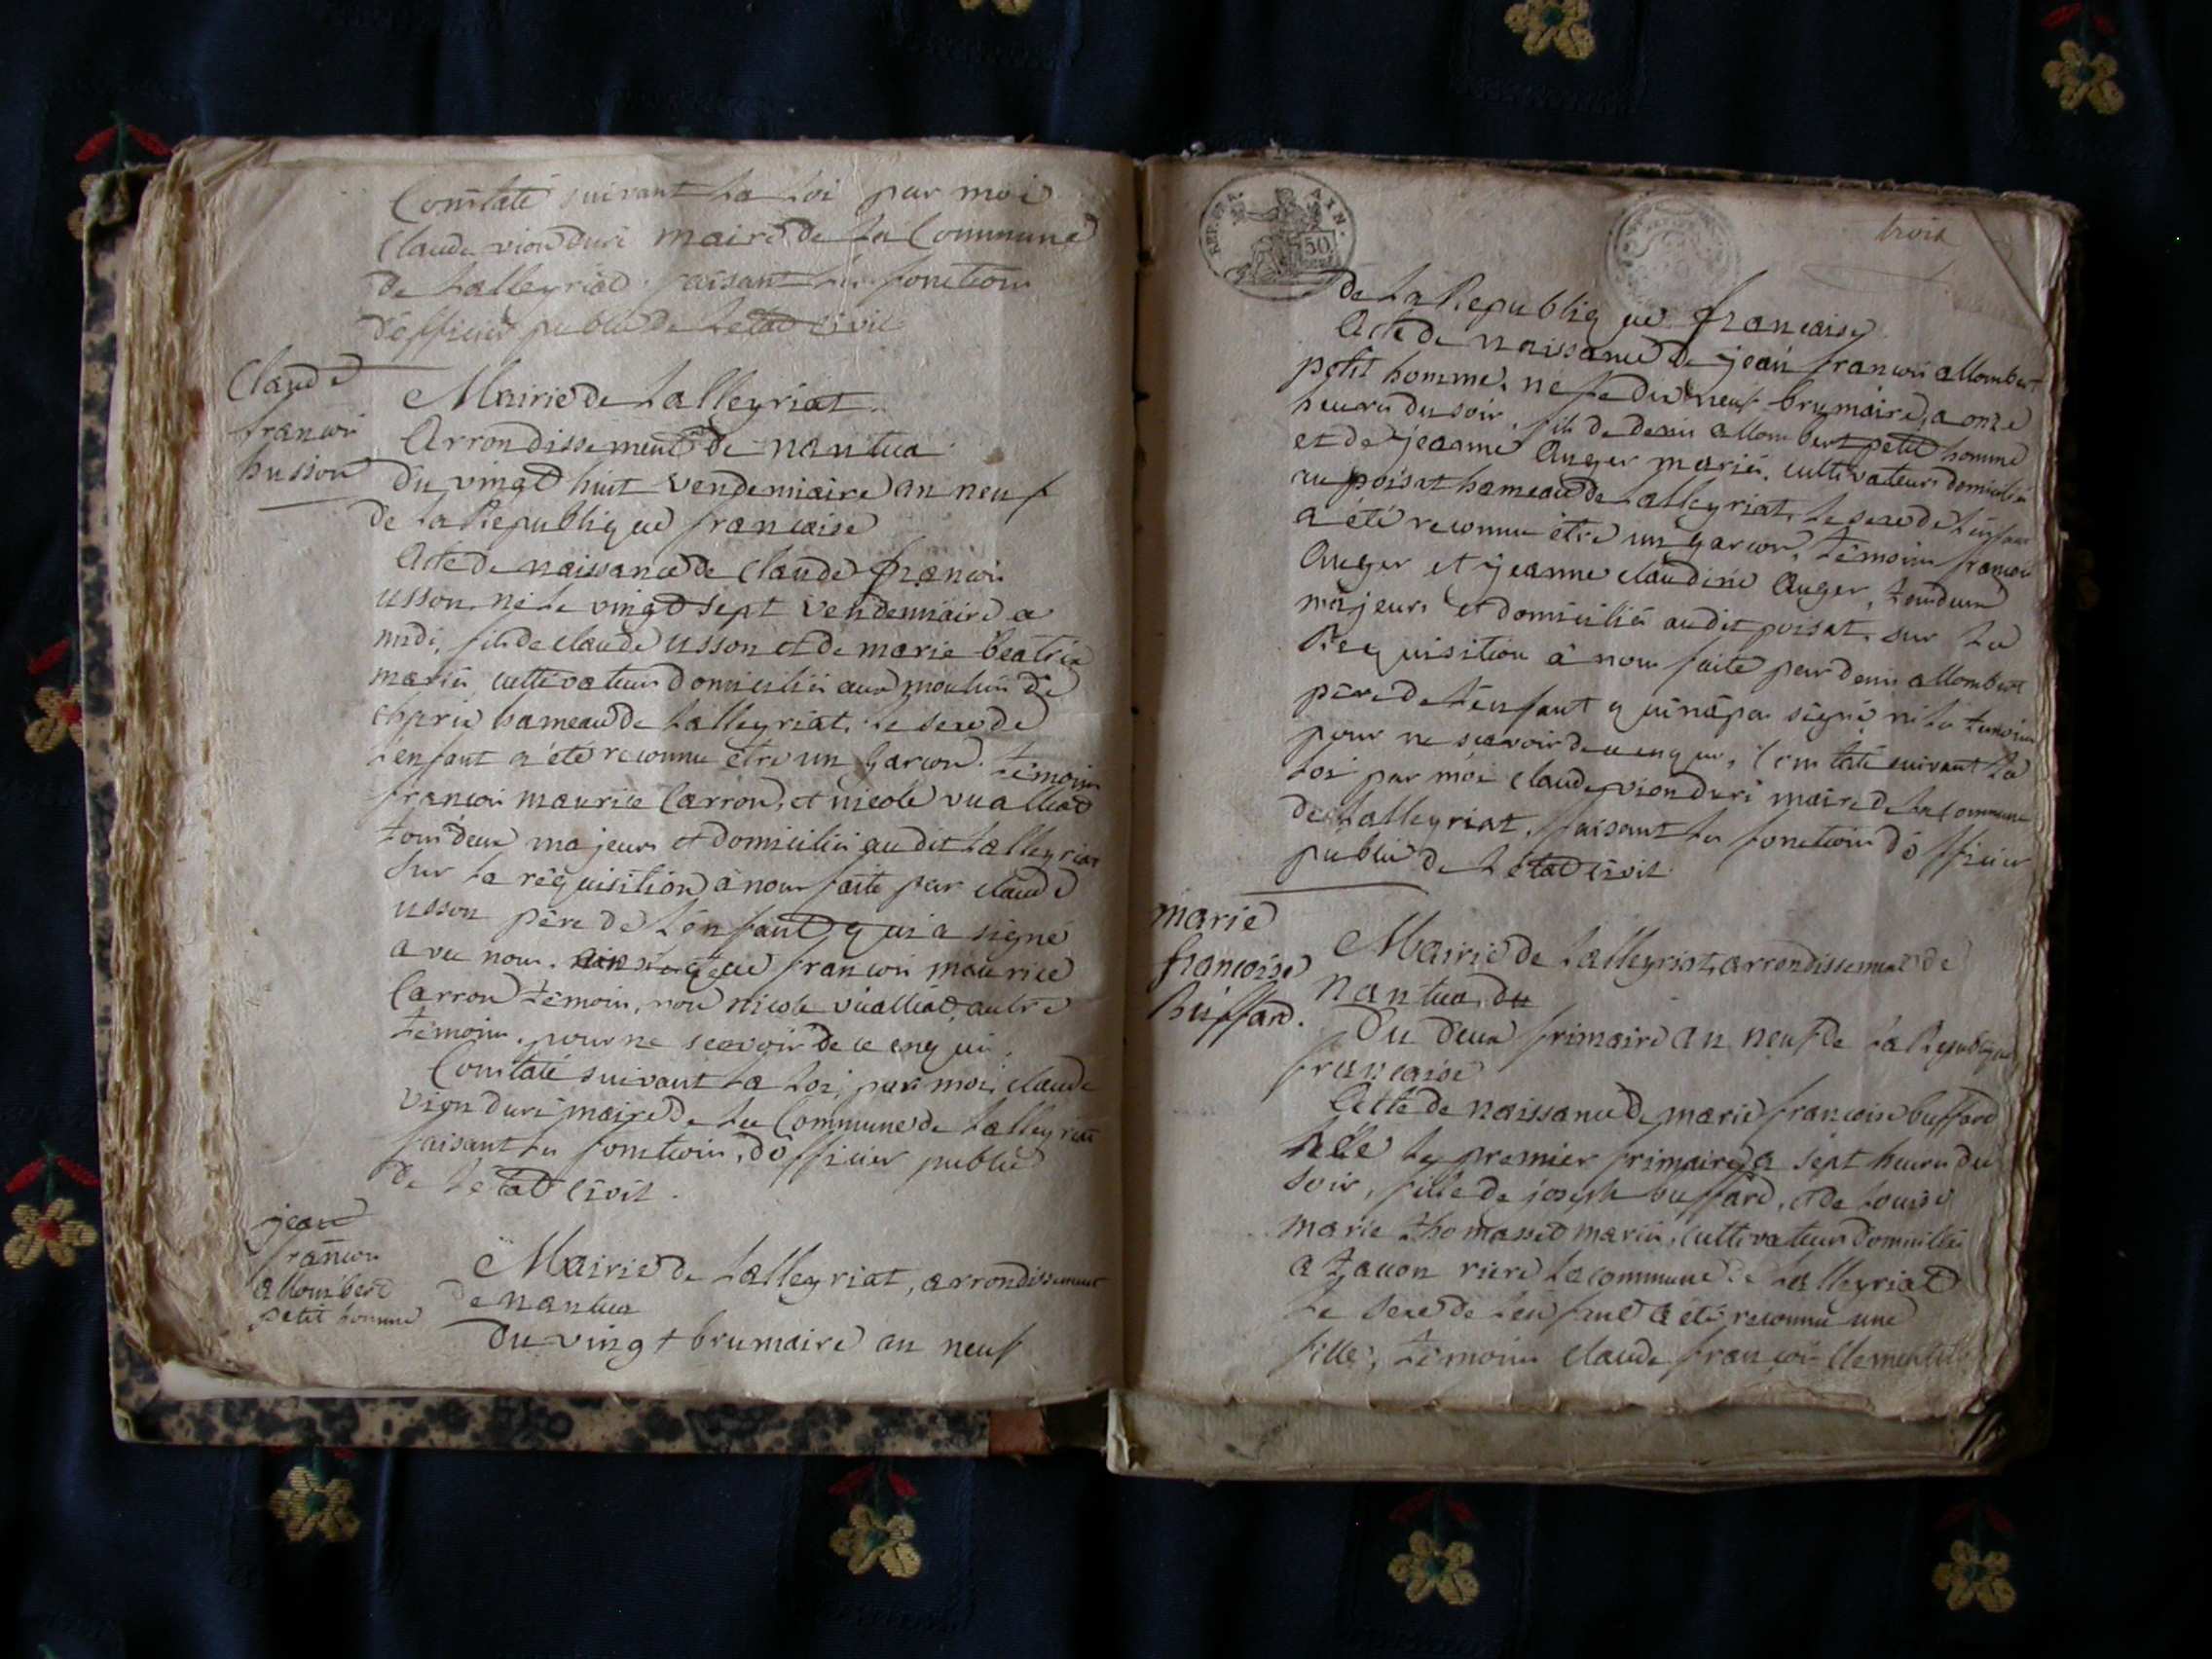 Constaté suivant la loi par moi
Claude vionduri maire de la Commune
de Lalleyriat faisant les fonctions
d'officier public de letat civil
Claude
francois
husson
Mairie de Lalleyriat
Arrondissement de nantua
Du vingt huit vendemiaire an neuf
de la Republique francaise
Acte de naissance de Claude francois
usson né le vingt sept vendemiaire a
midi, fils de claude usson et de marie beatrix
mariés cultivateurs domiciliés aux moulin de
charix hameau de Lalleyriat. Le sexe de
lenfant a été reconnu être un garcon. témoins
francois maurice Carron, et nicole vualliat
tous deux majeurs et domiciliés audit Lalleyriat
Sur la réquisition à nous faite par claude
usson père de l'enfant qui a signé
avec nous. ainsi que francois maurice
Carron témoin, non nicole vualliat, autre
témoin, pour ne scavoir de ce enquis.
Constaté suivant la loi, par moi, claude
vionduri maire de la Commune de Lalleyriat
faisant les fonctions, d'officier public
de l'état civil.
jean
francois
allombert
petit homme
Mairie de Lalleyriat, arrondissement
de nantua
Du vingt brumaire an neuf
REP. FRA. AIN.
50
trois
de la Republique francaise
Acte de naissance de jean francois allombert
petit homme, né le dix neuf brumaire, a onze
heures du soir, fils de denis allombert petit homme
et de jeanne Auger mariés, cultivateurs domiciliés
au poisat hameau de Lalleyriat, le sexe de lenfant
a été reconnu être un garcon, témoins francois
Auger et jeanne claudine Auger, tous deux
majeurs et domiciliés audit poisat, sur la
Requisition à nous faite par denis allombert
père de lenfant qui n'a pas signé ni les temoins
pour ne scavoir de ce enquis, Constaté suivant la
loi par moi claude vionduri maire de la Commune
de Lalleyriat, faisant les fonctions d'officier
public de letat civil
marie
francoise
Buffard.
Mairie de Lalleyriat, arrondissement de
nantua, du
Du deux frimaire an neuf de la Republique
francaise
Acte de naissance de marie francoise buffard
née le premier frimaire a sept heures du
soir, fille de joseph buffard, et de Louise
marie thomasset mariés, cultivateurs domiciliés
a tacon rière la commune de Lalleyriat
le sexe de lenfant a été reconnu une
fille, témoins claude francois